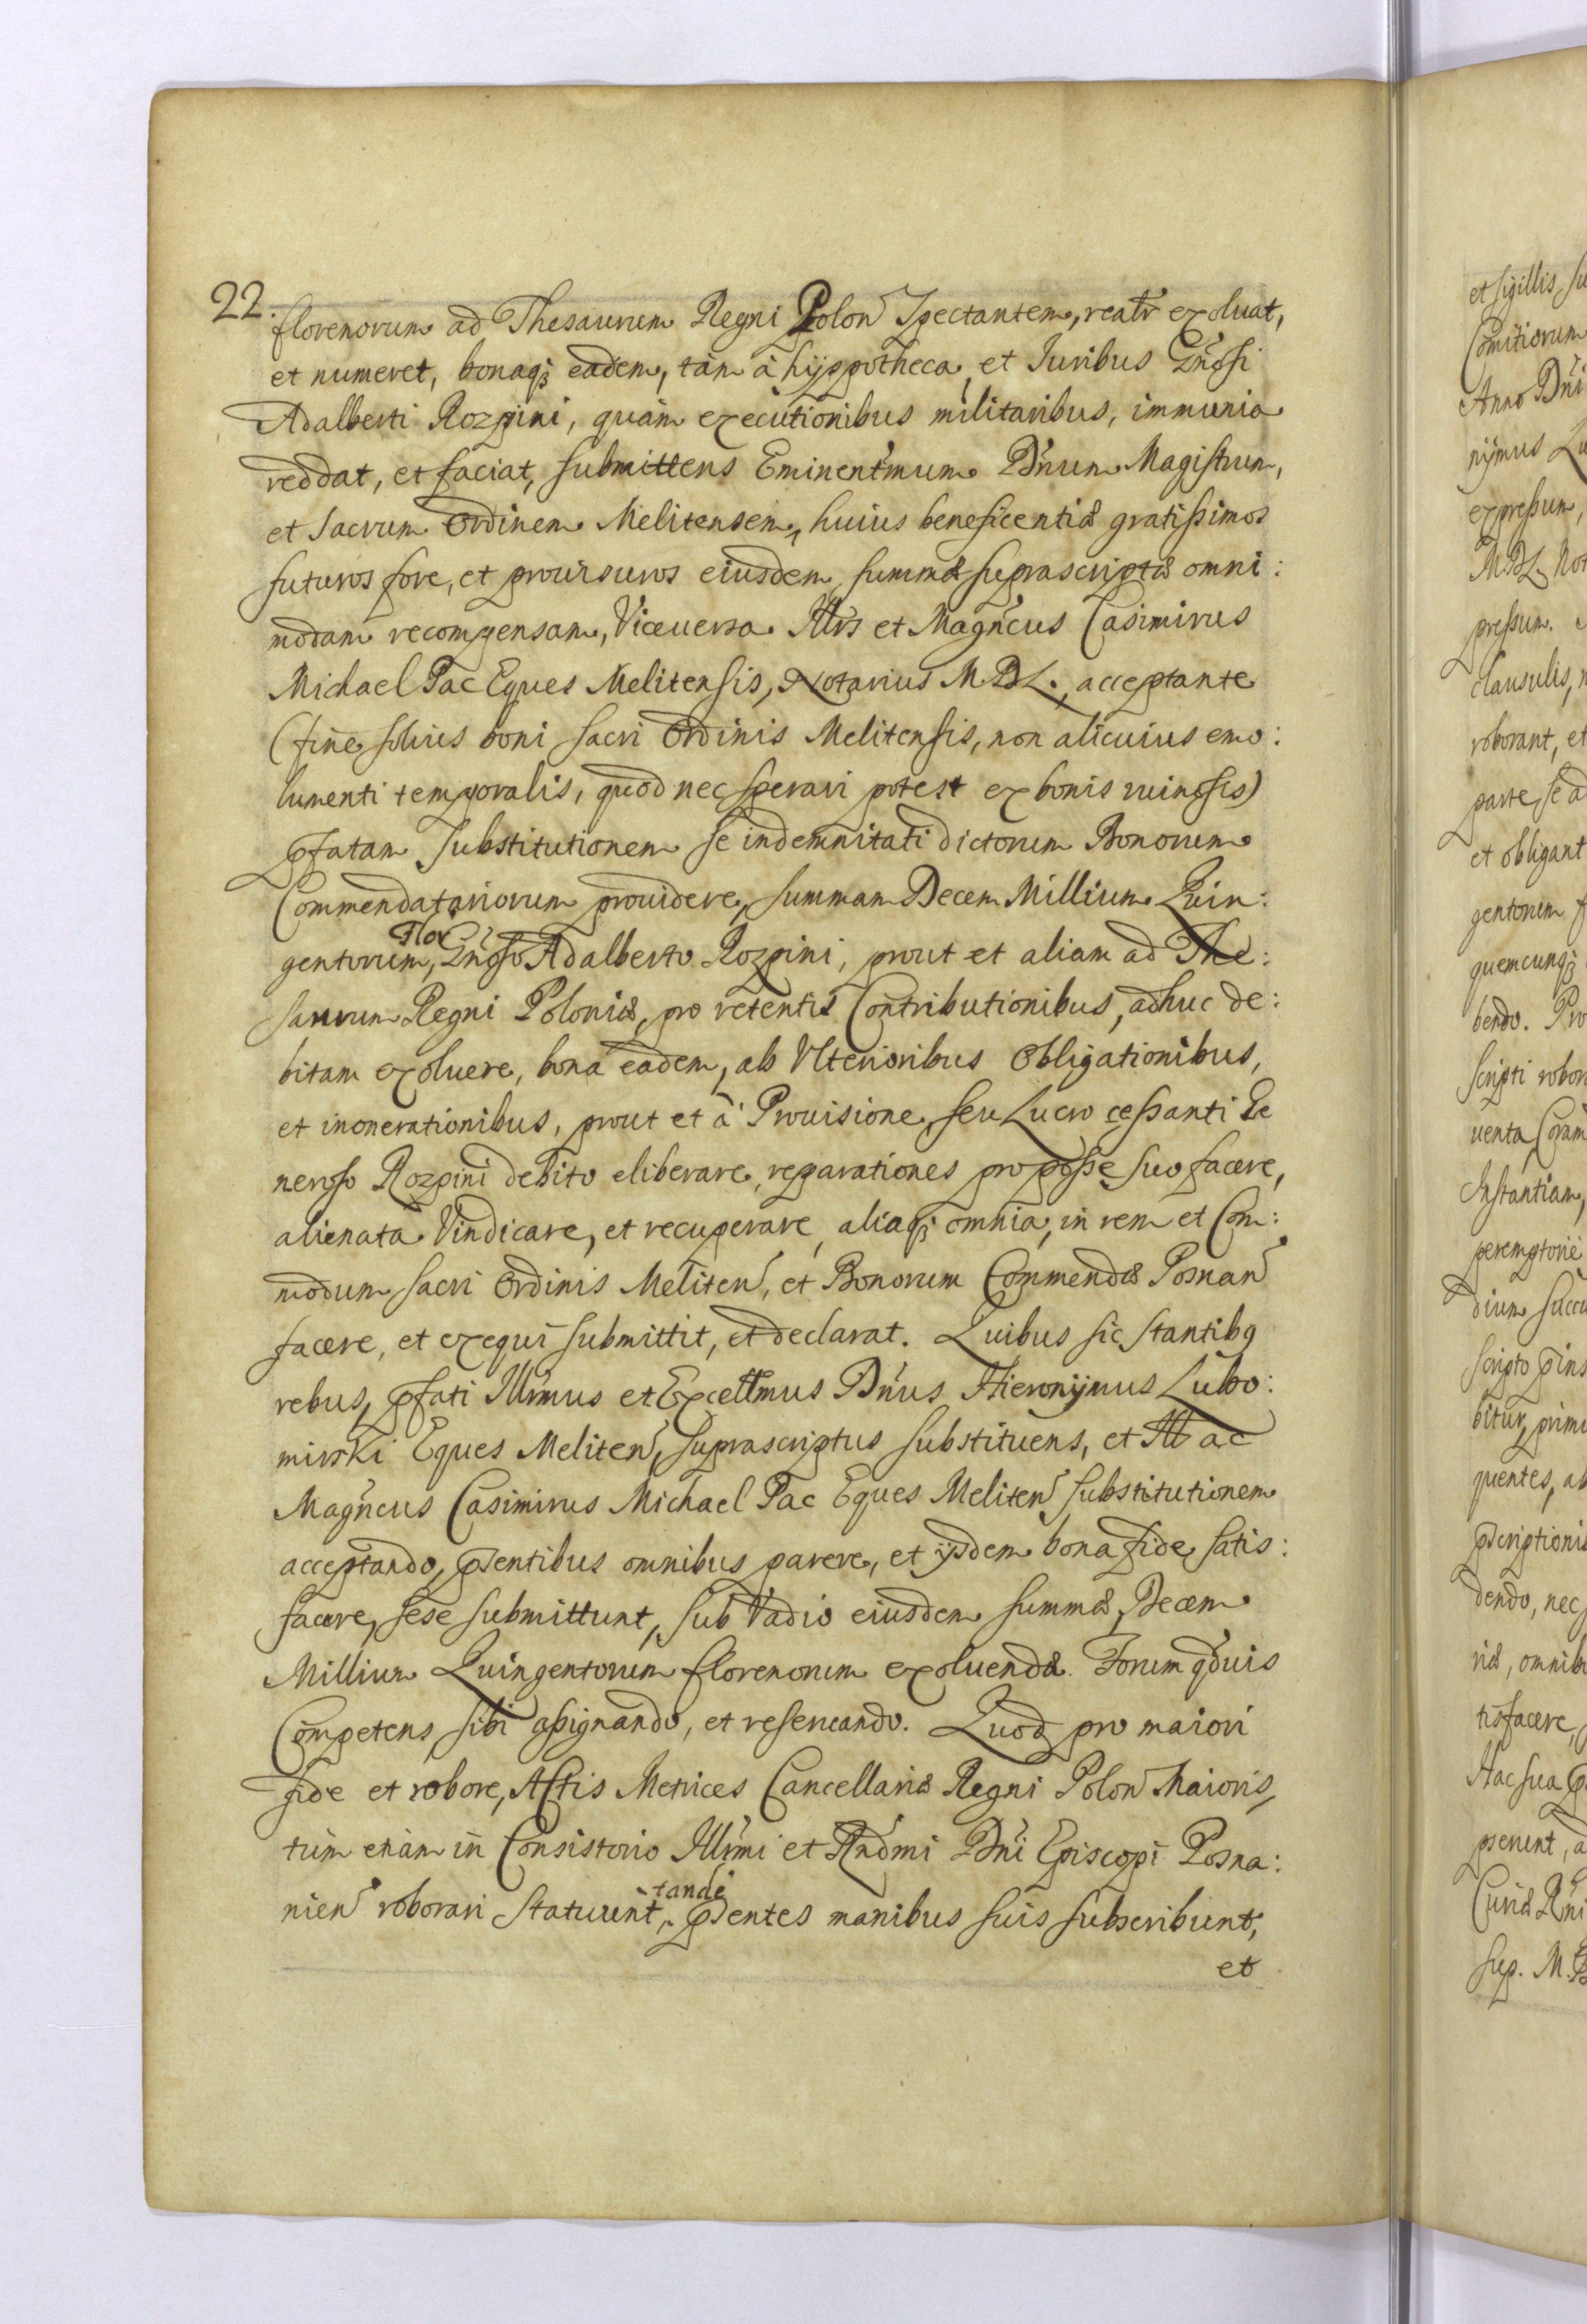 22.
florenorum ad Thesaurum Regni Polon Spectantem, realr exoluat,
et numeret, bonaq3 eadem, tàm à hijppotheca, et Iuribus Gnosi
Adalberti Rozpini, quàm executionibus militaribus, immunia
reddat, et faciat, submittens Eminentmum Dnum Magistrum,
et Sacrum Ordinem Melitensem, huius beneficentiæ gratissimos
futuros fore, et prouisuros eiusdem summæ suprascriptæ omni:
modam recompensam, Viceuersa Illrs et Magncus Casimirus
Michael Pac Eques Melitensis, Notarius M. D. L., acceptante
(fine solius boni sacri Ordinis Melitensis, non alicuius emo:
lumenti temporalis, quod nec sperari potest ex bonis ruinosis)
pfatam Substitutionem se indemnitati dictorum Bonorum
Commendatariorum prouidere, summam Decem Millium Quin:
gentorum, Flor Gnoso Adalberto Rozpini, prout et aliam ad The:
saurum Regni Poloniæ, pro retentis Contributionibus, adhuc de:
bitam exoluere, bona eadem, ab Vlterioribus Obligationibus,
et inonerationibus, prout et à Prouisione, seu Lucro cessanti Ge
neroso Rozpini debito eliberare, reparationes pro posse suo facere,
alienata Vindicare, et recuperare, aliaq3 omnia, in rem et Com:
modum sacri Ordinis Meliten, et Bonorum Commendæ Posnan
facere, et exequi submittit, et declarat. Quibus sic stantibq
rebus, pfati Illrmus et Excellmus Dnus Hieronijmus Lubo:
mirski Eques Meliten, suprascriptus substituens, et Ill ac
Magncus Casimirus Michael Pac Eques Meliten substitutionem
acceptando, psentibus omnibus parere, et ijsdem bona fide satis:
facere, sese submittunt, sub Vadio eiusdem summæ, Decem
Millium Quingentorum florenorum exoluendæ. Forum qduis
Competens sibi assignando, et reseruando. Quod pro maiori
fide et robore, Actis Metrices Cancellariæ Regni Polon Maioris,
tùm etiàm in Consistorio Illrmi et Rndmi Dni Episcopi Posna:
nien roborari statuunt, tandé psentes manibus suis subscribunt,
et
et sigillis su
Comitiorum
Anno Dni
nijmus Lu
expressum,
M. D. L. Not
pressum.
clausulis,
roborant, et
parte, se ad
et obligant
gentorum f
quemcunq3
bendo. Pro
scripti robor
uenta, Coram
Instantiam,
peremptoriè
dium succu
scripto pins
bitur, prim
quentes, ab
pscriptionis
dendo, nec
riæ, omnib
tisfacere,
Hac sua p
psenent, a
Curiæ Rni
sup. M. D